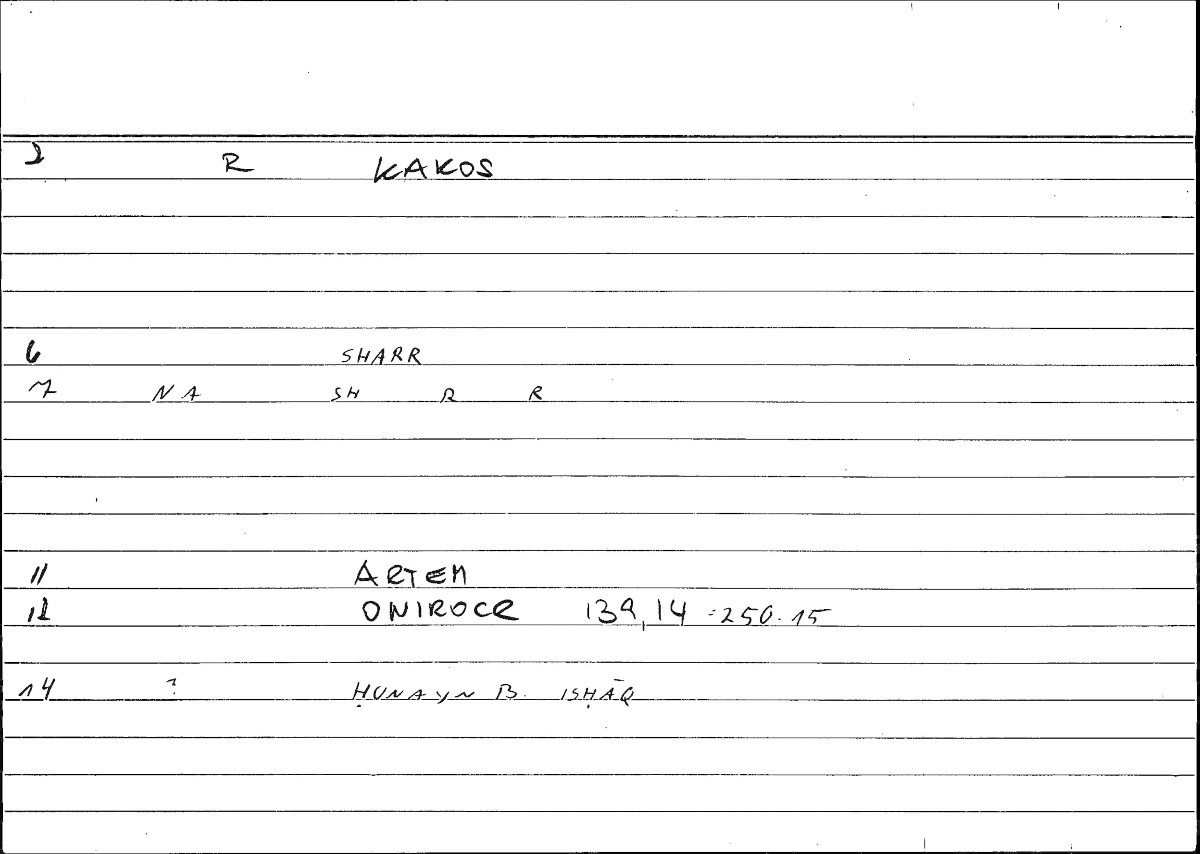 2 R KAKOS
6 SHARR
7 NA SH R R
11 ARTEM
12 ONIROCR 139,14 :250.15
14 ? ḤUNAYN B. ISḤĀQ